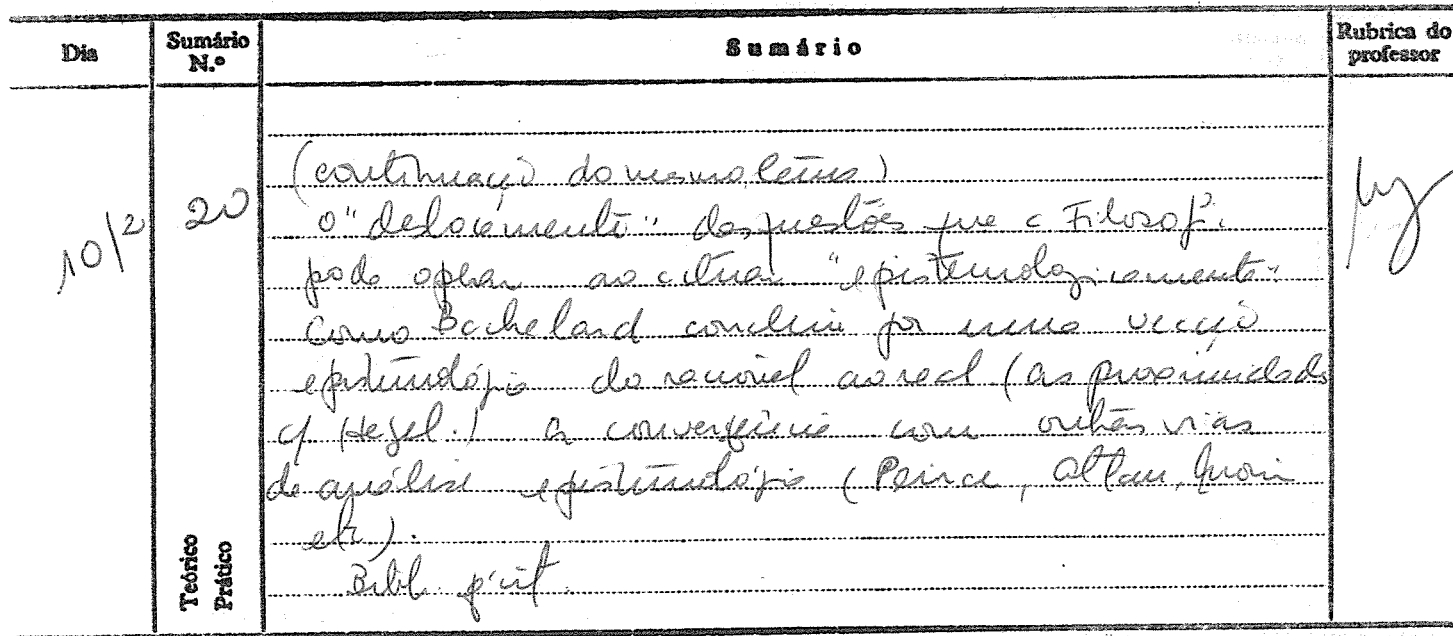 Dia Sumário N.º Sumário Rubrica do professor
10/2 20
(continuação do mesmo tema)
O "deslocamento" das questões que a Filosof.
pode operar ao actuar "epistemologicamente".
Como Bachelard conclui por uma vecção
epistemológic do racional ao real (as proximidades
c/ Hegel.) a convergência com outras vias
de análise epistemológic (Peirce, Atlan, Morin
etc).
Bibl. p. cit.
Teórico
Prático